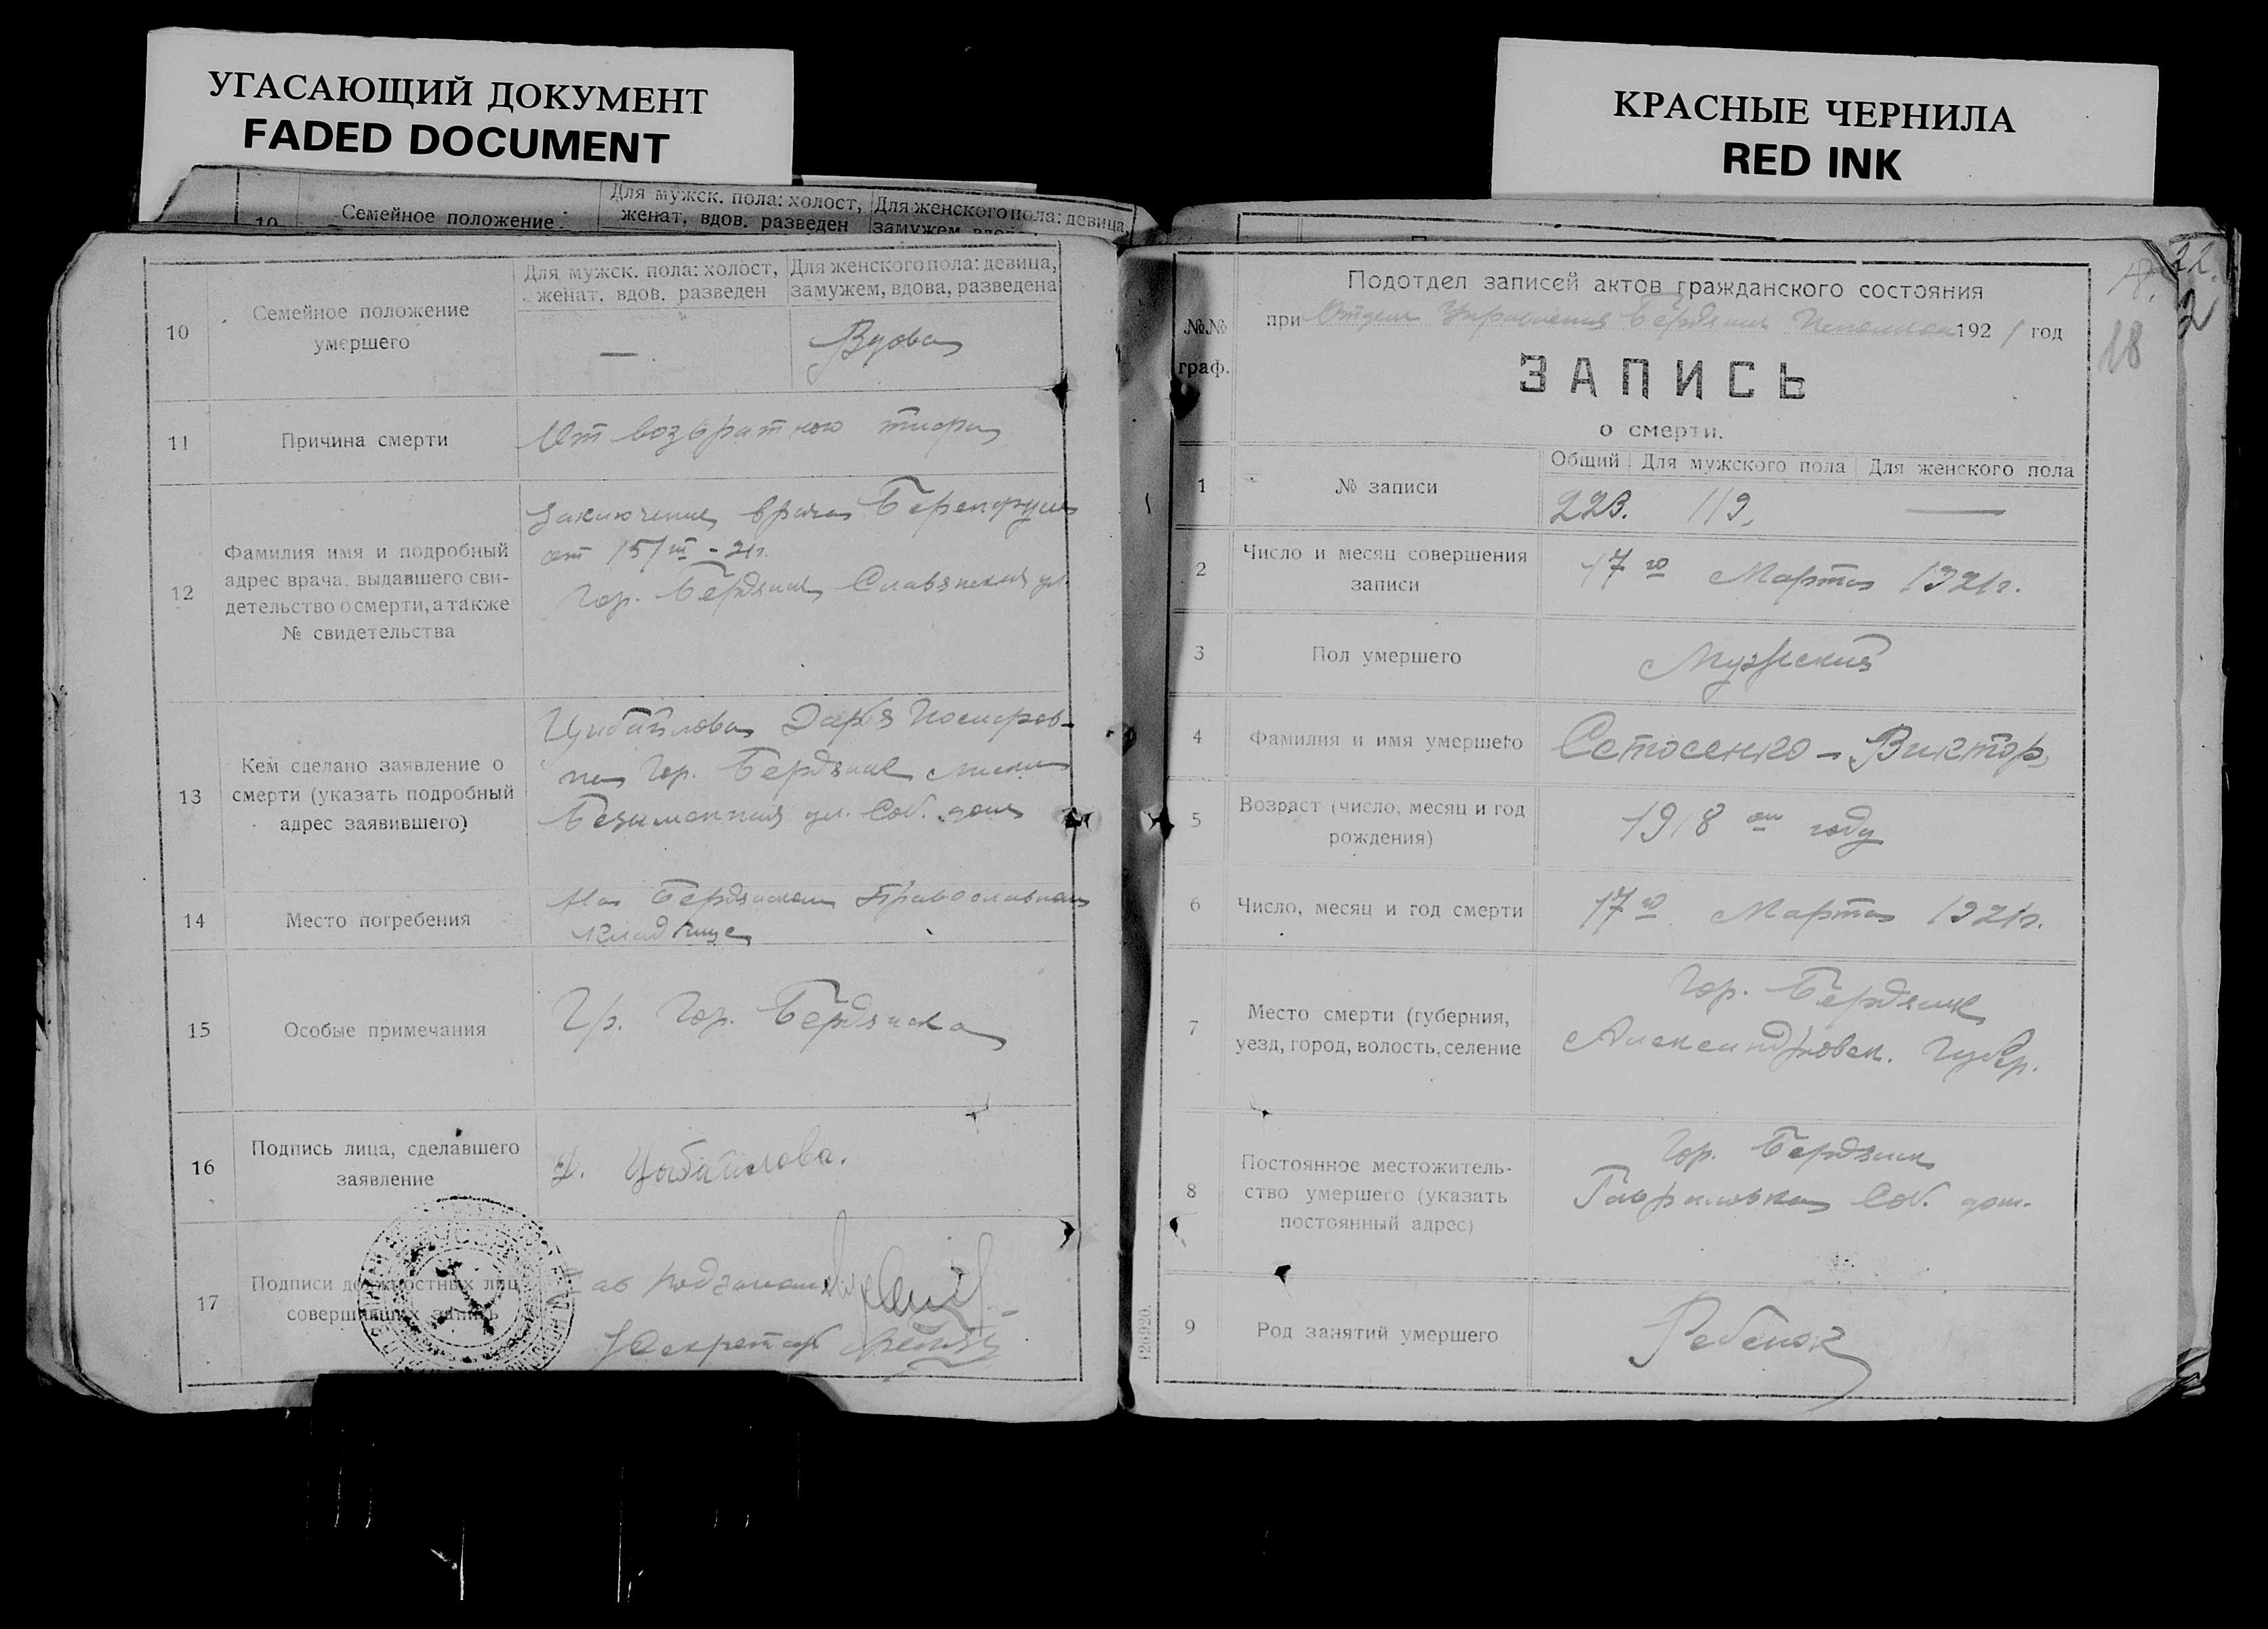 УГАСАЮЩИЙ ДОКУМЕНТ
FADED DOCUMENT
КРАСНЫЕ ЧЕРНИЛА
RED INK
10
Семейное положение
Для мужск. пола: холост,
женат, вдов. разведен
Для женского пола: девица,
замужем
10
Семейное положение
умершего
Для мужск. пола: холост,
женат, вдов. разведен
Для женского пола: девица,
замужем, вдова, разведена
—
Вдова
11
Причина смерти
От возвратного тифа
12
Фамилия имя и подробный
адрес врача, выдавшего сви-
детельство о смерти, а также
№ свидетельства
Заключение врача
от 15/III - 21г.
Гор. Бердянск Славянская ул.
13
Кем сделано заявление о
смерти (указать подробный
адрес заявившего)
Цибайлова Дарья
Гор. Бердянск
Безименная ул. Соб. дом
14
Место погребения
На Бердянском Православном
кладбище
15
Особые примечания
Гр. Гор. Бердянска
16
Подпись лица, сделавшего
заявление
Д. Цыбайлова.
17
Подписи должностных лиц
совершивших запись
Зав
Секретарь
22.
2
18
№.№
граф.
Подотдел записей актов гражданского состояния
при Отделе Управления Бердянск 1921 год
ЗАПИСЬ
о смерти.
1
№ записи
Общий Для мужского пола Для женского пола
223. 119. —
2
Число и месяц совершения
записи
17го Марта 1921г.
3
Пол умершего
Мужский
4
Фамилия и имя умершего
Сетосенко - Виктор
5
Возраст (число, месяц и год
рождения)
1918 ом году
6
Число, месяц и год смерти
17го Марта 1921г.
7
Место смерти (губерния,
уезд, город, волость, селение
Гор. Бердянск
Александровск. Губер.
8
Постоянное местожитель-
ство умершего (указать
постоянный адрес)
Гор. Бердянск
Гавриловка Соб. дом.
9
Род занятий умершего
Ребенок
126920.